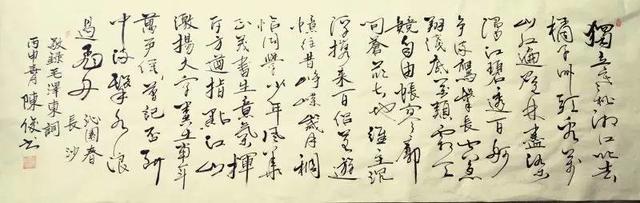 獨立寒秋湘江北去
橘子洲頭看萬
山紅遍層林盡染
漫江碧透百舸
爭流鷹擊長空魚
翔淺底萬類霜天
競自由悵寥廓
問蒼茫大地誰主沉
浮攜來百侶曾遊
憶往昔崢嶸歲月稠
恰同學少年風華
正茂書生意氣揮
斥方遒指點江山
激揚文字糞土當年
萬戶侯曾記否到
中流擊水浪
遏飛舟
沁園春
長沙
敬錄毛澤東詞
丙申 陳俊書